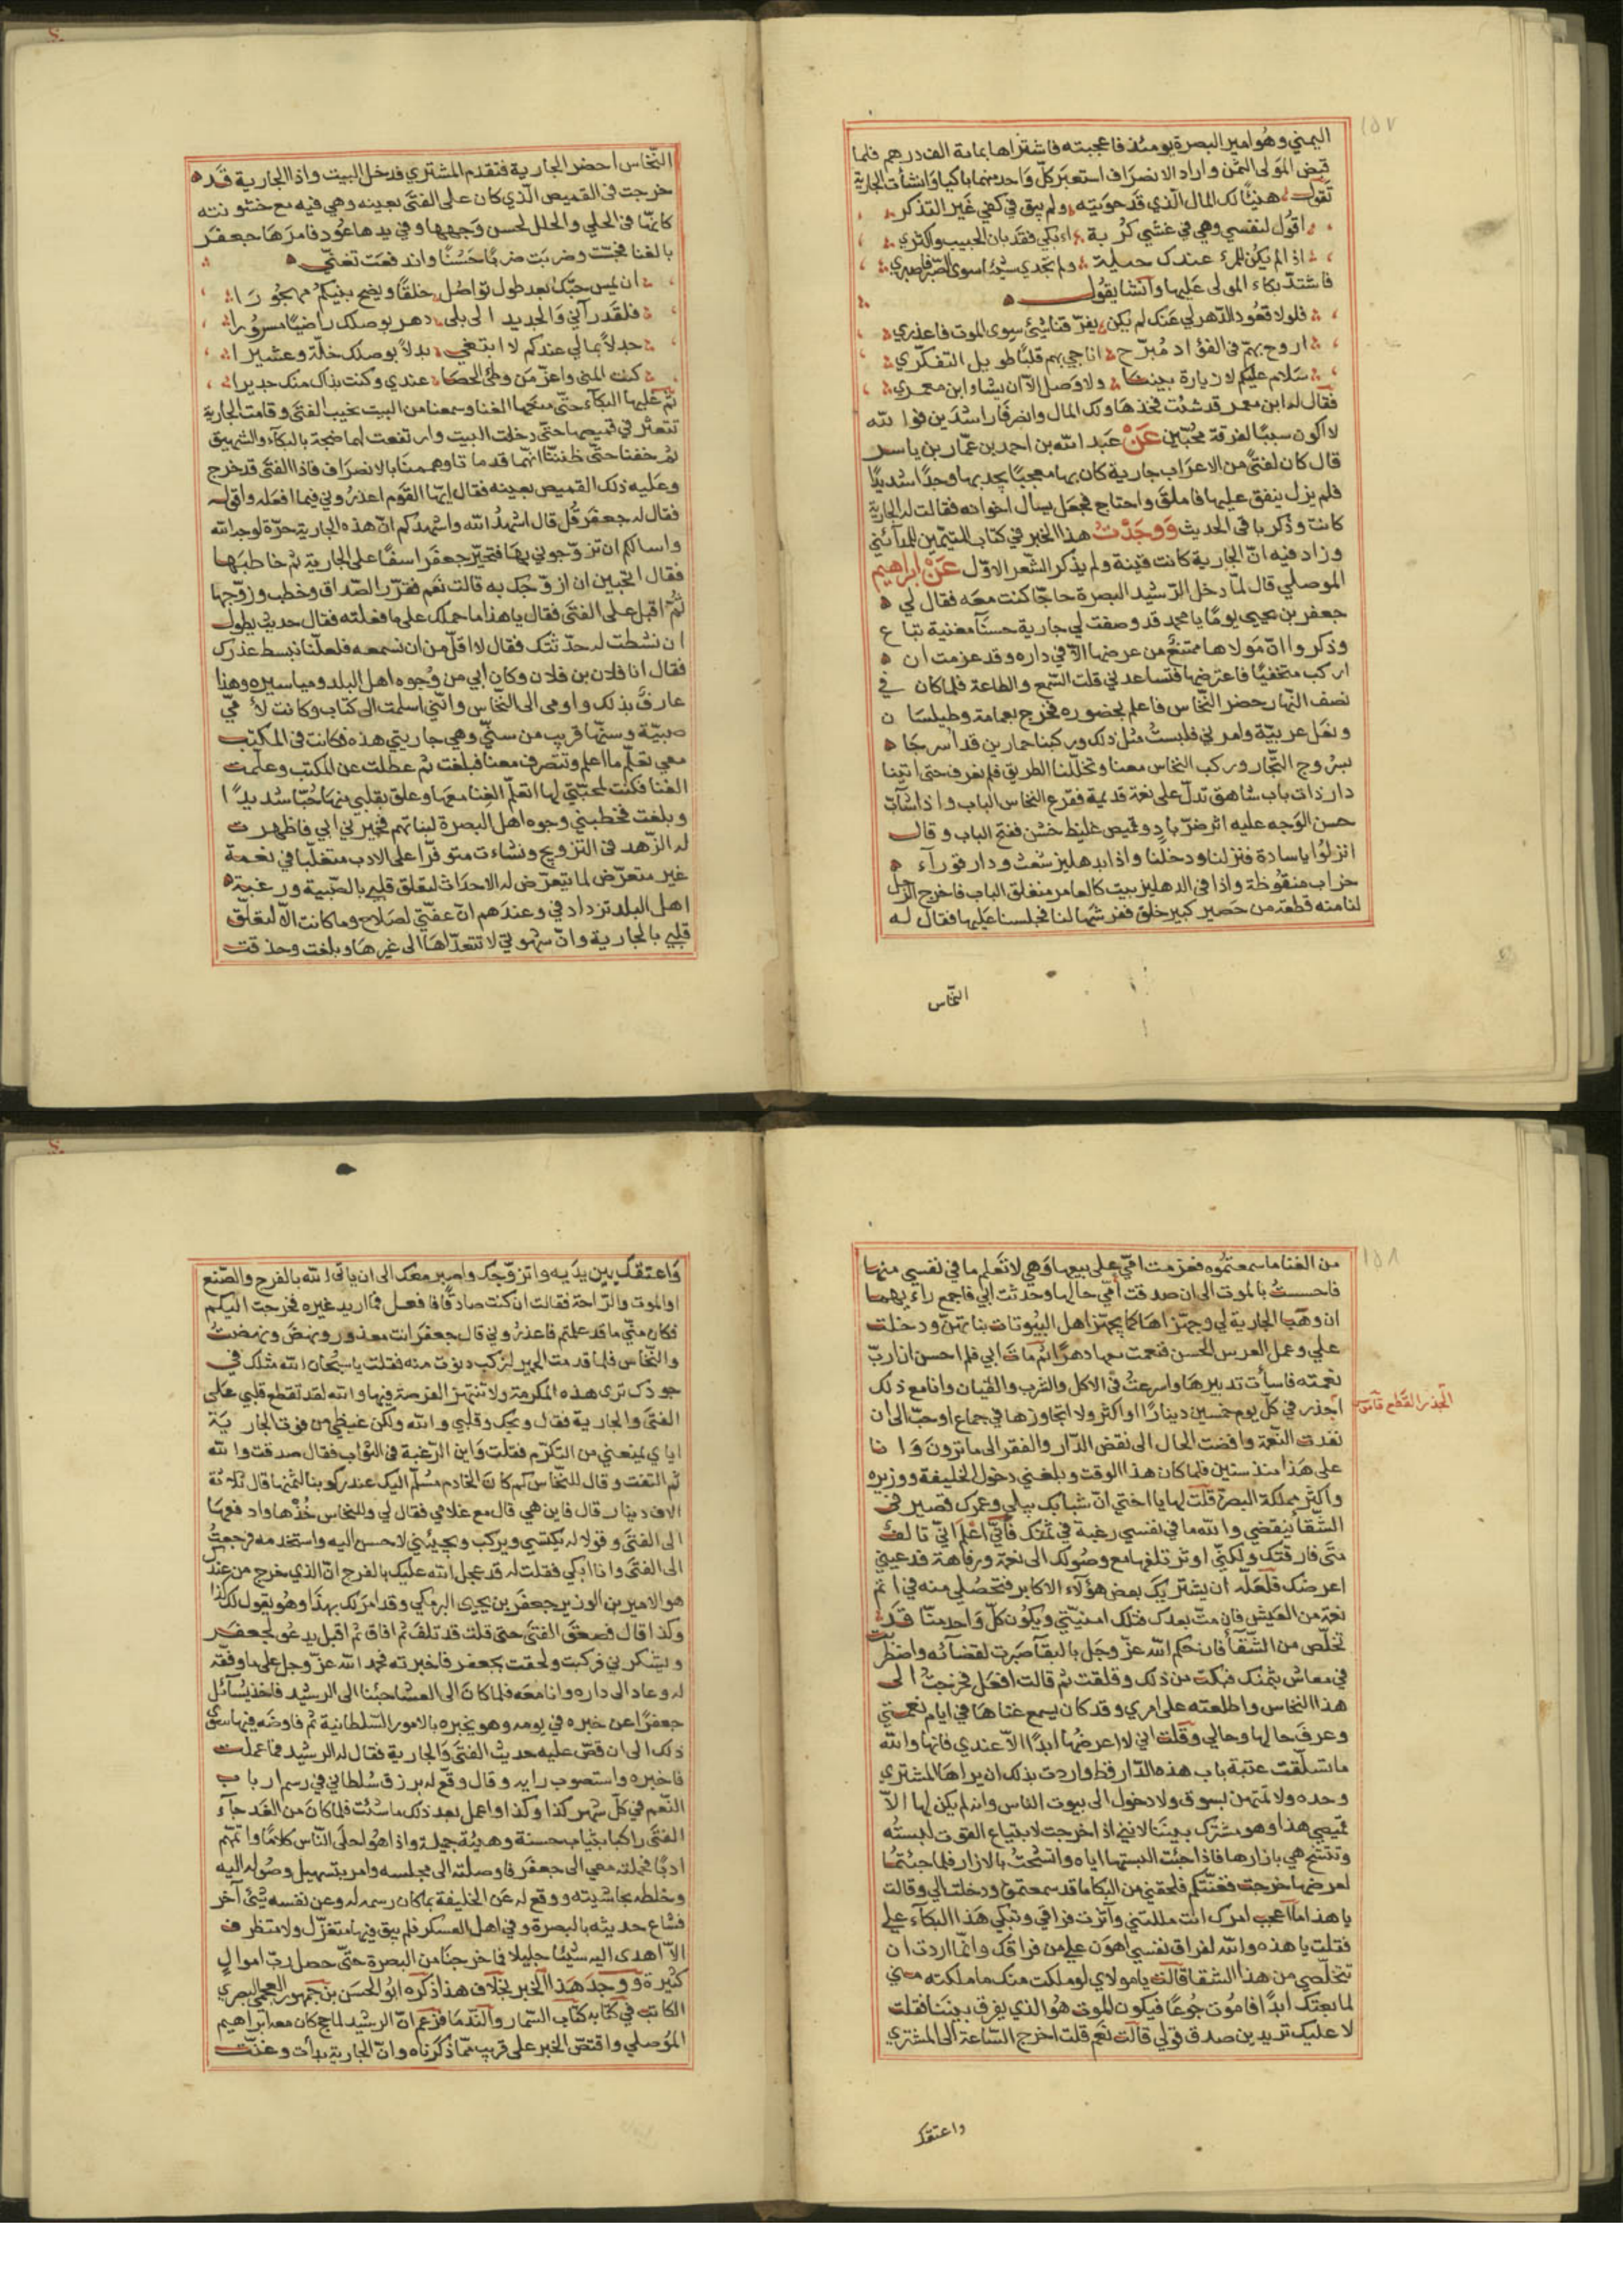 ١٥٧
اليمني وهو امير البصرة يومئذ فاعجبته فاشتراها بماية الف درهم فلما
قبض المولى الثمن واراد الانصراف استعبر كلّ واحد منهما باكيا وانشأت الجارية
تقول هنيئًا لك المال الّذي قد حويته ولم يبق في كفي غير التذكر
اقول لنفسي وهي في غشي كربة اءبكي فقد بان الحبيب واكثري
اذا لم يكن للمرء عندك حيلة ولم تجدي شيئا سوى الصّبر فاصبري
فاشتدّ بكاء المولى عليها وانشا يقول
فلولا قعود الدّهر لي عنك لم يكن يفرّقنا شيئ سوى الموت فاعذري
اروح بهمّ فى الفؤاد مُبرّح اناجي بهم قلبًا طويل التفكّري
سلام عليكم لا زيارة بيننا ولا وصل الّا ان يشاء ابن معمري
فقال له ابن معمر قد شئت فخذها ولك المال وانصرفا راشدين فوالله
لا اكون سببًا لفرقة محبّين عَنْ عبد الله بن احمد بن عمّار بن ياسر
قال كان لفتىً من الاعراب جارية كان بها معجبًا يجد بها وجدًا شديدًا
فلم يزل ينفق عليها فاملق واحتاج فجعل يسال اخوانه فقالت له الجارية
كانت وذكر باقى الحديث وَوجَدْتُ هذا الخبر في كتاب المتيّمين للمدآئني
وزاد فيه انّ الجارية كانت قينة ولم يذكر الشّعر الاوّل عَنْ ابراهيم
الموصلي قال لمّا دخل الرّشيد البصرة حاجّا كنت معه فقال لي
جعفر بن يحيى يومًا يا محمد قد وصفت لي جارية حسنآ مغنية تباع
وذكروا انّ مولاها ممتنع من عرضها الّا في داره وقد عزمت ان
اركب متخفيًا فاعترضها فتساعدني قلت السّمع والطاعة فلما كان في
نصف النّهار حضر النّخاس فاعلم بحضوره فخرج بعمامة وطيلسان
ونعل عربيّة وامرني فلبستُ مثل ذلك وركبنا حمارين قد اسرجا
بسروج التّجار وركب النخاس معنا وتخلّلنا الطريق فلم نعرف حتى اتينا
دار ذات باب شاهق تدلّ على نعمة قديمة فقرع النخاس الباب واذا شابّ
حسن الوجه عليه اثر ضرّ بادٍ وقميص غليظ خشن ففتح الباب وقال
انزلوا يا سادة فنزلنا ودخلنا واذا بدهليز شعث ودار قوراء
خراب منقوظة واذا في الدهليز بيت كالعامر منغلق الباب فاخرج الرّجل
لنا منه قطعة من حصير كبير خلق ففرشها لنا فجلسنا عليها فقال له
النّخاس
النّخاس احضر الجارية فتقدم المشتري فدخل البيت واذا الجارية قد
خرجت فى القميص الّذي كان على الفتى بعينه وهي فيه مع خشونته
كانّها فى الحلي والحلل لحسن وجهها وفي يدها عُود فامرها جعفر
بالغنا فجسّت وضربت ضربًا حسنًا واندفعت تغنّي
ان يمس حبّك بعد طول تواصل خلقًا ويضح بينكم مهجورا
فلقد رآني والجديد الى بلى دهر بوصلك راضيًا مسرورا
جدلاً بمالي عندكم لا ابتغي بدلاً بوصلك خلّة وعشيرا
كنت المنى واعزّ من وطئ الحصا عندي وكنت بذاك منك جديرا
ثمّ غلبها البكآء حتّى منعها الغنا وسمعنا من البيت نحيب الفتى وقامت الجارية
تتعثر في قميصها حتّى دخلت البيت وارتفعت لهما ضجة بالبكآء والشهيق
ثم خفتا حتّى ظننّا انّهما قد ماتا وهممنا بالانصراف فاذا الفتى قد خرج
وعليه ذلك القميص بعينه فقال ايّها القوم اعذروني فيما افعله واقوله
فقال له جعفر قُل قال اشهدُ الله واشهدكم انّ هذه الجارية حرّة لوجه الله
واسالكم ان تزوّجوني بها فتحيّر جعفر اسفًا على الجارية ثم خاطبها
فقال اتحبين ان ازوّجك به قالت نعم فقرّر الصّداق وخطب وزوّجها
ثمّ اقبل على الفتى فقال يا هذا ما حملك على ما فعلته فقال حديثي يطول
ان نشطت له حدّثتك فقال لا اقلّ من ان نسمعه فلعلّنا نبسط عذرك
فقال انا فلان بن فلان وكان ابي من وجوه اهل البلد ومياسيره وهذا
عارفٌ بذلك واومى الى النخّاس وانّني اسلمت الى كتّاب وكانت لأمّي
صبيّة وسنّها قريب من سنّي وهي جاريتي هذه فكانت فى المكتب
معي تعلّم ما اعلم وتنصرف معنا فبلغت ثم عطلت عن المكتب وعلّمت
الغنا فكنت لمحبّتي لها اتعلّم الغنا معها وعلق بقلبي منها حُبّا شديدًا
وبلغت فخطبني وجوه اهل البصرة لبناتهم فخيرني ابي فاظهرت
له الزّهد فى التزويج ونشاءت متوفّرًا على الادب متقلّبا في نعمة
غير متعرّض لما يتعرّض له الاحداث لتعلق قلبي بالصّبية ورغبة
اهل البلد تزداد فيّ وعندهم انّ عفّتي لصلاح وما كانت الّا لتعلّق
قلبي بالجارية وانّ شهوتي لا تتعدّاها الى غيرها وبلغت وحذقت
١٥٨
من الغنا ما سمعتموه فعزمت امّي على بيعها وهي لا تعلم ما في نفسي منها
فاحسستُ بالموت الى ان صدقت أمّي حالها وحدثت ابي فاجمع راءيهما
ان وهبا الجارية لي وجهّزاها كما يجهّز اهل البيُوتات بناتهنّ ودخلت
علي وعمل العرس الحسن فنعمت معها دهرًا ثم مات ابي فلم احسن ان اربّ
نعمته فاسأت تدبيرها واسرعتُ فى الاكل والشرب والقيان وانا مع ذلك
اجذر في كلّ يوم خمسين دينارًا او اكثر ولا اتجاوزها في جماع او حبّ الى ان
نفدت النّعمة وافضت الحال الى نقض الدّار والفقر الى ما ترون وانا
على هذا منذ سنين فلما كان هذا الوقت وبلغني دخول الخليفة ووزيره
واكثر مملكة البصرة قلت لها يا اختي انّ شبابك يبلي وعمرك قصير في
الشّقآ ينقضي والله ما في نفسي رغبة في ثمنك فانّي اعلم انّي تالف
متى فارقتك ولكنّي اوثر تلفها مع وصولك الى نعمة ورفاهة فدعيني
اعرضك فلعلّه ان يشتريك بعض هؤلآء الاكابر فتحصُلي منه في اتم
نعمة من العيش فان متّ بعدك فتلك امنيّتي ويكون كلّ واحد منّا قد
تخلّص من الشّقآ فان حكم الله عزّ وجل بالبقآ صبرت لقضائه واضطررت
في معاش بثمنك فبكت من ذلك وقلقت ثم قالت افعل فخرجتُ الى
هذا النخاس واطلعته على امري وقد كان يسمع غناها في ايام نعمتي
وعرف حالها وحالي وقلت اني لا اعرضها ابدًا الّا عندي فانها والله
ما تسلّقت عتبة باب هذه الدّار قط واردت بذلك ان يراها المشتري
وحده ولا تمتهن بسوق ولا دخول الى بيوت الناس وانه لم يكن لها الّا
قميصي هذا وهو مشترك بيننا لانني اذا خرجت لابتياع القوت لبستُه
وتتّشح هي بازارها فاذا جئت البستها اياه واتّشحتُ بالازار فلما جئتما
لعرضها خرجت فغنّتكم فلحقني من البكا ما قد سمعتموه ودخلت الي وقالت
يا هذا ما اعجب امرك انت مللتني وآثرت فراقي وتبكي هذا البكآء علي
فقلت يا هذه والله لفراق نفسي اهون علي من فراقك وانّما اردت ان
تتخلّصي من هذا الشقا قالت يا مولاي لو ملكت منك ما ملكته مني
لما بعتك ابدًا فاموت جوعًا فيكون الموت هو الذي يفرق بيننا فقلت
لا عليك تريدين صدق قولي قالت نعم قلت اخرج السّاعة الى المشتري
الجذر القطع قاموس
واعتقك
واعتقك بين يديه واتزوّجك واصبر معك الى ان ياتى الله بالفرج والصّنع
او الموت والرّاحة فقالت ان كنت صادقًا فافعل فما اريد غيره فخرجت اليكم
فكان منّي ما قد علمتم فاعذروني قال جعفر انت معذور ونهض ونهضتُ
والنّخاس فلما قدمت الحمير لنركب دنوت منه فقلت يا سبحان الله مثلك في
جودك ترى هذه المكرمة ولا تنتهز الفرصة فيها والله لقد تقطع قلبي على
الفتى والجارية فقال ويحك وقلبي والله ولكن غيظي من فوت الجارية
اياي يمنعني من التكرّم فقلت واين الرّغبة فى الثواب فقال صدقت والله
ثم التفت وقال للنخّاس كم كان الخادم سلّم اليك عند ركوبنا لثمنها قال ثلثة
الاف دينار قال فاين هي قال مع غلامي فقال لي وللنخاس خُذْها وادفعها
الى الفتى وقولا له يكتسي ويركب ويجيئني لاحسن اليه واستخدمه فرجعتُ
الى الفتى وانا ابكي فقلت له قد عجل الله عليك بالفرج انّ الذي خرج من عندك
هو الامير بن الوزير جعفر بن يحيى البرمكي وقد امر لك بهذا وهو يقول لك كذا
وكذا قال فصعق الفتى حتى قلت قد تلف ثم افاق ثم اقبل يدعو لجعفر
ويشكرني فركبت ولحقت بجعفر فاخبرته فحمد الله عزّ وجل على ما وفقه
له وعاد الى داره وانا معه فلما كان الى العشا جئنا الى الرشيد فاخذ يسائل
جعفرًا عن خبره في يومه وهو يخبره بالامور السّلطانية ثم فاوضه فيما سوى
ذلك الى ان قصّ عليه حديث الفتى والجارية فقال له الرشيد فما عملت
فاخبره واستصوب رايه وقال وقّع له برزق سُلطاني في رسم ارباب
النّعم في كلّ شهر كذا وكذا واعمل بعد ذلك ما شئت فلما كان من الغد جآء
الفتى راكبا بثياب حسنة وهيئة جميلة واذا هو احلى النّاس كلامًا واتمّهم
ادبًا فحملته معي الى جعفر فاوصلته الى مجلسه وامر بتسهيل وصُوله اليه
وخلطه بحاشيته ووقع له عن الخليفة بما كان رسمه له وعن نفسه بشئ آخر
فشاع حديثه بالبصرة وفي اهل العسكر فلم يبق فيها متغزّل ولا متظرف
الّا اهدى اليه شيئا جليلا فما خرجنا من البصرة حتّى حصل ربّ اموال
كثيرة ووجد هذا الخبر بخلاف هذا ذكره ابو الحسن بن جمهور العجمي البصري
الكاتب في كتابه كتاب السّمار والنّدما فزعم انّ الرشيد لما حج كان معه ابراهيم
الموصلي واقتصّ الخبر على قريب ممّا ذكرناه وانّ الجارية بدأت وغنّت